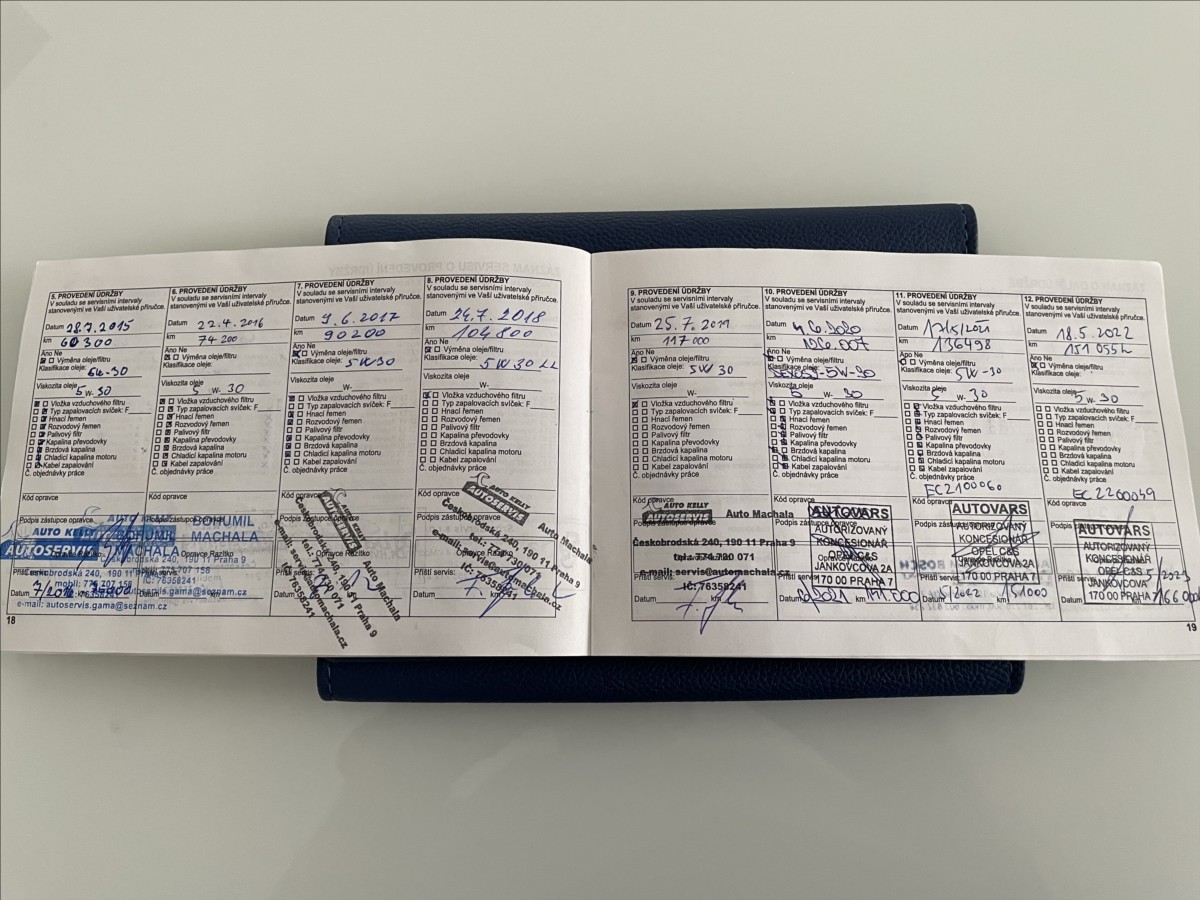 5. PROVEDENÍ ÚDRŽBY
V souladu se servisními intervaly
stanovenými ve Vaší uživatelské příručce.
Datum 28.7.2015
km 60 300
Ano Ne
Výměna oleje/filtru
Klasifikace oleje:
Viskozita oleje
5 W- 30
Vložka vzduchového filtru
Typ zapalovacích svíček: F
Hnací řemen
Rozvodový řemen
Palivový filtr
Kapalina převodovky
Brzdová kapalina
Chladící kapalina motoru
Kabel zapalování
Č. objednávky práce
Kód opravce
Podpis zástupce opravce
AUTO KELLY
AUTOSERVIS
BOHUMIL
MACHALA
Českobrodská 240, 190 11 Praha 9
mobil: 774 207 158
IČ: 76358241
e-mail: autoservis.gama@seznam.cz
Datum
18
6. PROVEDENÍ ÚDRŽBY
V souladu se servisními intervaly
stanovenými ve Vaší uživatelské příručce.
Datum 22.4.2016
km 74 200
Ano Ne
Výměna oleje/filtru
Klasifikace oleje:
Viskozita oleje
5 W- 30
Vložka vzduchového filtru
Typ zapalovacích svíček: F
Hnací řemen
Rozvodový řemen
Palivový filtr
Kapalina převodovky
Brzdová kapalina
Chladící kapalina
Kabel zapalování
Č. objednávky práce
Kód opravce
Podpis zástupce opravce
BOHUMIL
MACHALA
Datum
7. PROVEDENÍ ÚDRŽBY
V souladu se servisními intervaly
stanovenými ve Vaší uživatelské příručce.
Datum 9.6.2017
km 90200
Ano Ne
Výměna oleje/filtru
Klasifikace oleje: 5W30
Viskozita oleje
W-
Vložka vzduchového filtru
Typ zapalovacích svíček: F
Hnací řemen
Rozvodový řemen
Palivový filtr
Kapalina převodovky
Brzdová kapalina
Chladící kapalina motoru
Kabel zapalování
Č. objednávky práce
Kód opravce
AUTO KELLY
AUTOSERVIS
Auto Machala
Českobrodská 240, 190 11 Praha 9
Opravce Razítko
Příští servis:
8. PROVEDENÍ ÚDRŽBY
V souladu se servisními intervaly
stanovenými ve Vaší uživatelské příručce.
Datum 24.7.2018
km 104800
Ano Ne
Výměna oleje/filtru
Klasifikace oleje: 5W30 LL
Viskozita oleje
W-
Vložka vzduchového filtru
Typ zapalovacích svíček: F
Hnací řemen
Rozvodový řemen
Palivový filtr
Kapalina převodovky
Brzdová kapalina
Chladící kapalina motoru
Kabel zapalování
Č. objednávky práce
Kód opravce
AUTO KELLY
AUTOSERVIS
Auto Machala
Českobrodská 240, 190 11 Praha 9
IČ: 76358241
Příští servis:
Datum
9. PROVEDENÍ ÚDRŽBY
V souladu se servisními intervaly
stanovenými ve Vaší uživatelské příručce.
Datum 25.7.2019
km 117 000
Ano Ne
Výměna oleje/filtru
Klasifikace oleje: 5W30
Viskozita oleje
W-
Vložka vzduchového filtru
Typ zapalovacích svíček: F
Hnací řemen
Rozvodový řemen
Palivový filtr
Kapalina převodovky
Brzdová kapalina
Chladící kapalina motoru
Kabel zapalování
Č. objednávky práce
Kód opravce
AUTO KELLY
AUTOSERVIS
Auto Machala
Podpis zástupce opravce
Českobrodská 240, 190 11 Praha 9
tel.: 774 720 071
e-mail: servis@automachala.cz
Příští servis:
IČ:76358241
Datum km
10. PROVEDENÍ ÚDRŽBY
V souladu se servisními intervaly
stanovenými ve Vaší uživatelské příručce.
Datum
km
Ano Ne
Výměna oleje/filtru
Klasifikace oleje: 5W-30
Viskozita oleje
5 W- 30
Vložka vzduchového filtru
Typ zapalovacích svíček: F
Hnací řemen
Rozvodový řemen
Palivový filtr
Kapalina převodovky
Brzdová kapalina
Chladící kapalina motoru
Kabel zapalování
Č. objednávky práce
Kód opravce
AUTOVARS
Podpis zástupce opravce
AUTORIZOVANÝ
KONCESIONÁŘ
OPEL C&S
JANKOVCOVA 2A
170 00 PRAHA 7
Příští servis:
Datum
11. PROVEDENÍ ÚDRŽBY
V souladu se servisními intervaly
stanovenými ve Vaší uživatelské příručce.
Datum
km 136498
Ano Ne
Výměna oleje/filtru
Klasifikace oleje: 5W-30
Viskozita oleje
5 W- 30
Vložka vzduchového filtru
Typ zapalovacích svíček: F
Hnací řemen
Rozvodový řemen
Palivový filtr
Kapalina převodovky
Brzdová kapalina
Chladící kapalina motoru
Kabel zapalování
Č. objednávky práce
EC2100060
Kód opravce
AUTOVARS
AUTORIZOVANÝ
KONCESIONÁŘ
OPEL C&S
JANKOVCOVA 2A
170 00 PRAHA 7
Příští servis:
Datum 5/2022 151000
12. PROVEDENÍ ÚDRŽBY
V souladu se servisními intervaly
stanovenými ve Vaší uživatelské příručce.
Datum 18.5.2022
km
Ano Ne
Výměna oleje/filtru
Klasifikace oleje:
Viskozita oleje
5 W- 30
Vložka vzduchového filtru
Typ zapalovacích svíček: F
Hnací řemen
Rozvodový řemen
Palivový filtr
Kapalina převodovky
Brzdová kapalina
Chladící kapalina motoru
Kabel zapalování
Č. objednávky práce
EC2200049
Kód opravce
AUTOVARS
AUTORIZOVANÝ
KONCESIONÁŘ
OPEL C&S
JANKOVCOVA
170 00 PRAHA 7
Příští servis: 5/2023
Datum 166000
19